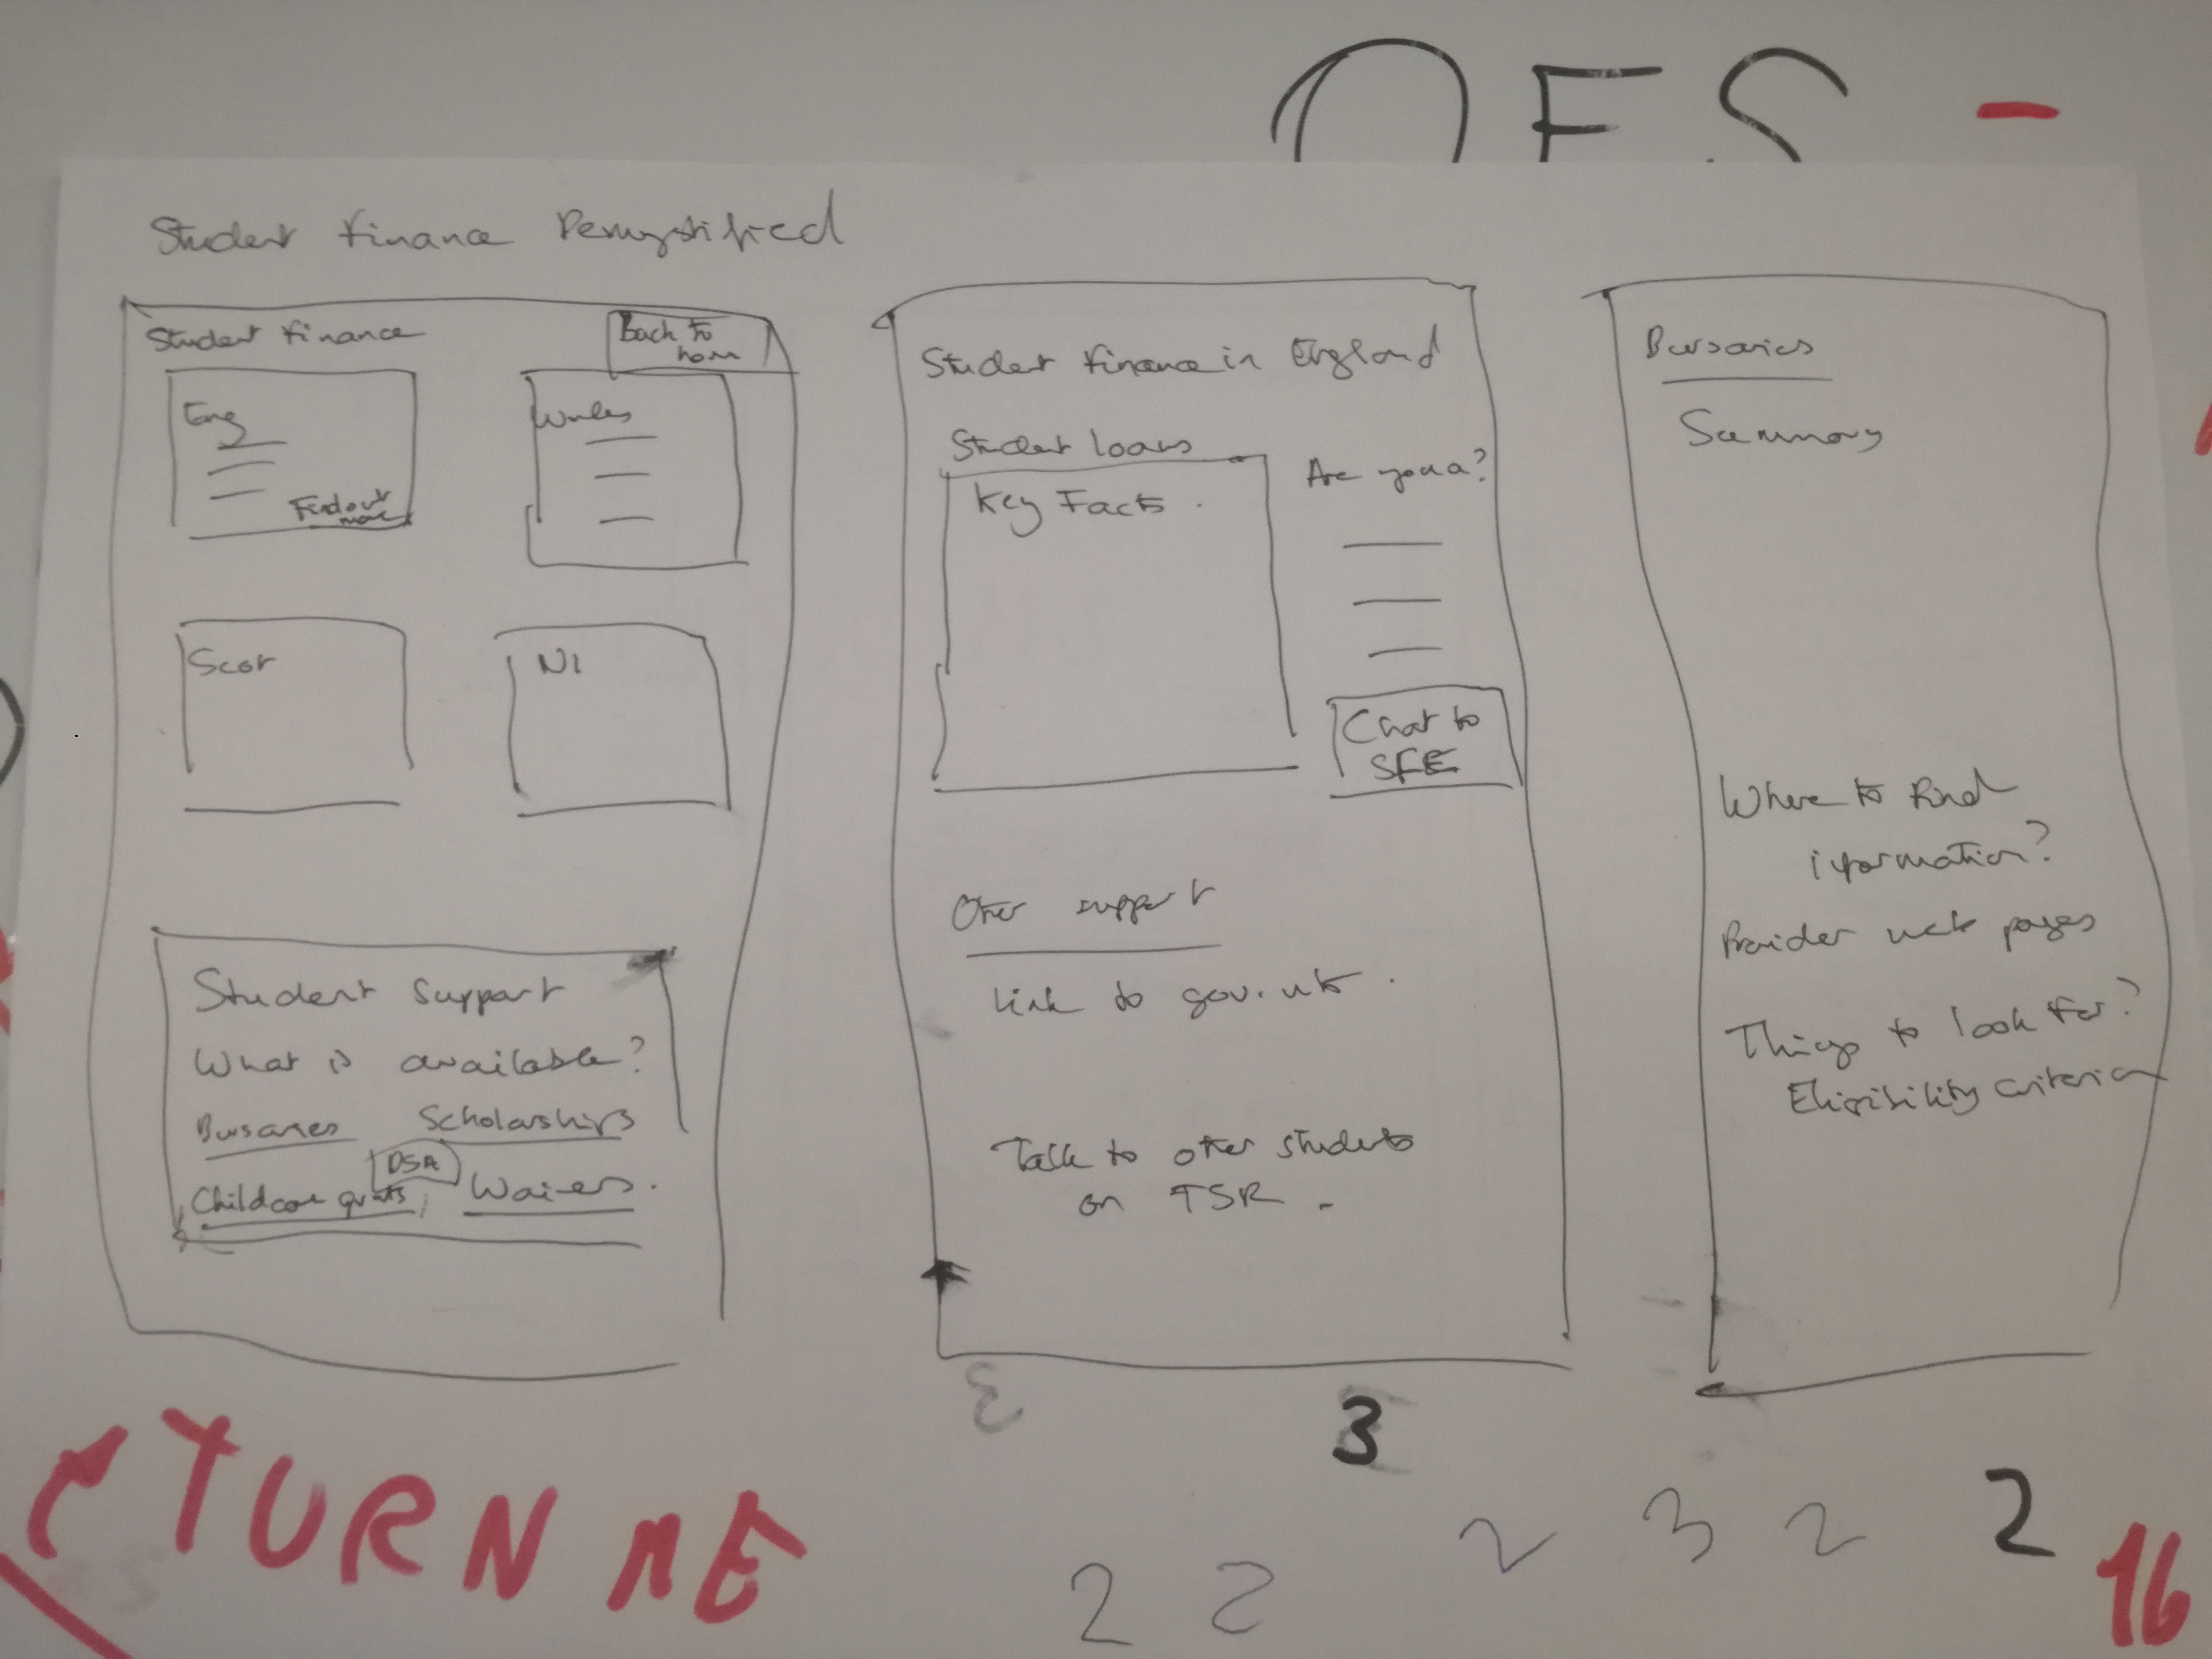 OFS -
Student Finance Demystified
Student Finance
Back to
home
Eng
Find out
more
Wales
Scot
NI
Student Support
What is available?
Bursaries Scholarships
DSA
Childcare grants, Waivers.
Student Finance in England
Student loans
Key Facts.
Are you a?
Chat to
SFE
Other support
Link to gov.uk.
Talk to other students
on TSR.
Bursaries
Summary
Where to find
information?
Provider web pages
Things to look for?
Eligibility criteria
3
TURN ME
2 2 2 3 2 2
16